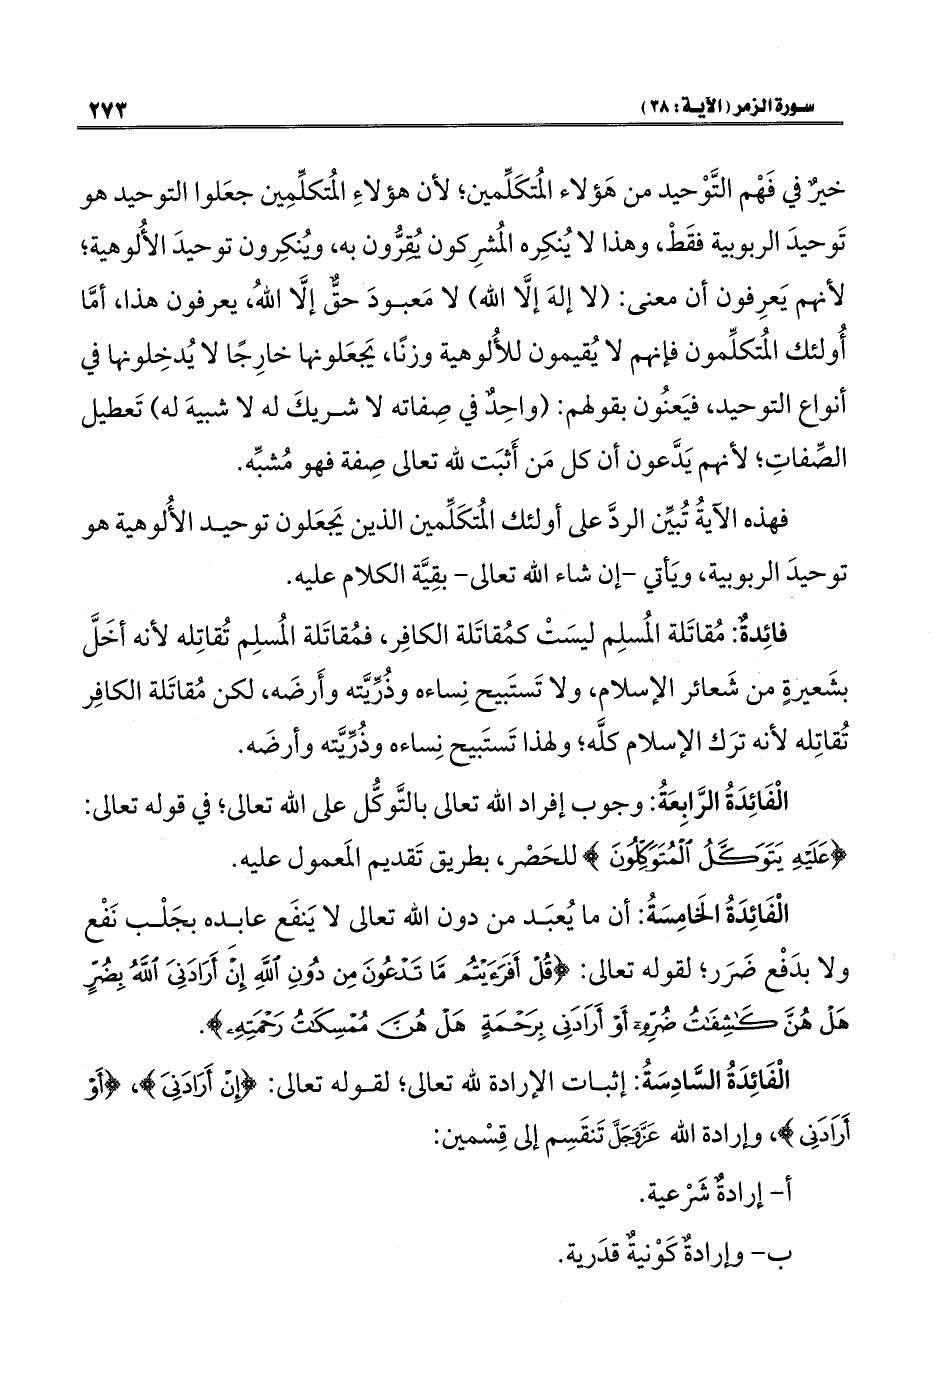 سورة الزمر (الآية: ٣٨)
٢٧٣
خيرٌ في فَهْم التَّوْحيد من هَؤلاء المُتكَلِّمين؛ لأن هؤلاءِ المُتكلِّمِين جعَلوا التوحيد هو
تَوحيدَ الربوبية فقَطْ، وهذا لا يُنكِره المُشرِكون يُقِرُّون به، ويُنكِرون توحيدَ الأُلوهية؛
لأنهم يَعرِفون أن معنى: (لا إلهَ إلَّا الله) لا مَعبودَ حقٌّ إلَّا اللهُ، يعرفون هذا، أمَّا
أُولئك المُتكلِّمون فإنهم لا يُقيمون للأُلوهية وزنًا، يَجعَلونها خارِجًا لا يُدخِلونها في
أنواع التوحيد، فيَعنُون بقولهم: (واحِدٌ في صِفاته لا شريكَ له لا شبيهَ له) تَعطيل
الصِّفاتِ؛ لأنهم يَدَّعون أن كل مَن أَثبَت لله تعالى صِفة فهو مُشبِّه.
فهذه الآيةُ تُبيِّن الردَّ على أولئك المُتكَلِّمين الذين يَجعَلون توحيد الأُلوهية هو
توحيدَ الربوبية، ويَأتي -إن شاء الله تعالى- بقِيَّة الكلام عليه.
فائِدةٌ: مُقاتَلة المُسلِم ليسَتْ كمُقاتَلة الكافِر، فمُقاتَلة المُسلِم تُقاتِله لأنه أخَلَّ
بشَعيرةٍ من شَعائر الإسلام، ولا تَستَبيح نِساءه وذُرِّيَّته وأَرضَه، لكن مُقاتَلة الكافِر
تُقاتِله لأنه ترَك الإسلام كلَّه؛ ولهذا تَستَبيح نِساءه وذُرِّيَّته وأرضَه.
الْفَائِدَةُ الرَّابِعَةُ: وجوب إفراد الله تعالى بالتَّوكُّل على الله تعالى؛ في قوله تعالى:
﴿عَلَيْهِ يَتَوَكَّلُ ٱلْمُتَوَكِّلُونَ﴾ للحَصْر، بطريق تَقديم المَعمول عليه.
الْفَائِدَةُ الخَامِسَةُ: أن ما يُعبَد من دون الله تعالى لا يَنفَع عابده بجَلْب نَفْع
ولا بدَفْع ضَرَر؛ لقوله تعالى: ﴿قُلْ أَفَرَءَيْتُم مَّا تَدْعُونَ مِن دُونِ ٱللَّهِ إِنْ أَرَادَنِيَ ٱللَّهُ بِضُرٍّ
هَلْ هُنَّ كَٰشِفَٰتُ ضُرِّهِۦٓ أَوْ أَرَادَنِي بِرَحْمَةٍ هَلْ هُنَّ مُمْسِكَٰتُ رَحْمَتِهِۦ﴾.
الْفَائِدَةُ السَّادِسَةُ: إثبات الإرادة لله تعالى؛ لقوله تعالى: ﴿إِنْ أَرَادَنِيَ﴾، ﴿أَوْ
أَرَادَنِي﴾، وإرادة الله عَزَّوَجَلَّ تَنقَسِم إلى قِسْمين:
أ- إرادةٌ شَرْعية.
ب- وإرادةٌ كَوْنيةٌ قدَرية.